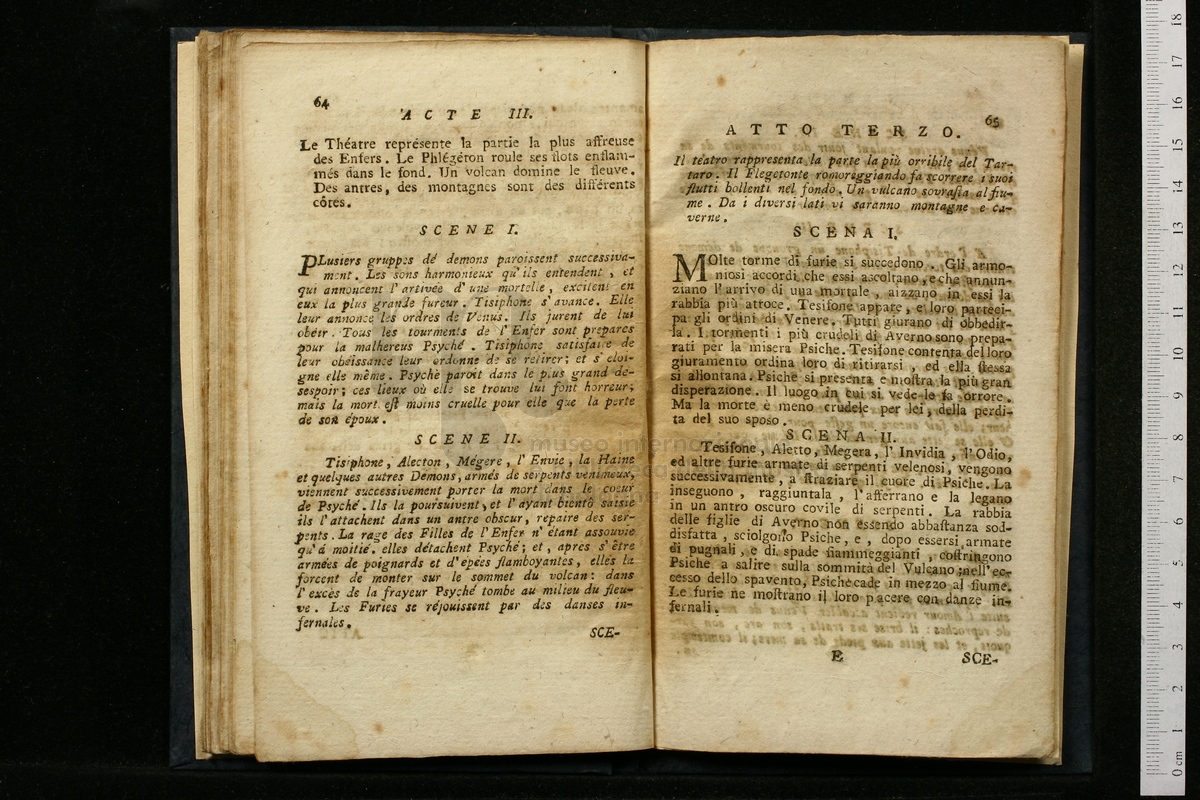 64
ACTE III.
Le Théatre représente la partie la plus affreuse
des Enfers. Le Phlégéron roule ses flots enflam-
més dans le fond. Un volcan domine le fleuve.
Des antres, des montagnes sont des différents
côtes.
SCENE I.
PLusiers gruppes dé demons paroissent successiva-
ment. Les sons harmonieux qu'ils entendent, et
qui annoncent l'arrivée d'une mortelle, excitent en
eux la plus grande fureur. Tisiphone s'avance. Elle
leur annonce les ordres de Venus. Ils jurent de lui
obéir. Tous les tourments de l'Enfer sont prepares
pour la malhereus Psyché. Tisiphone satisfaite de
leur obéissance leur ordonne de se retirer; et s'eloi-
gne elle même. Psychè paroit dans le plus grand de-
sespoir; ces lieux où elle se trouve lui font horreur;
mais la mort est moins cruelle pour elle que la perte
de son époux.
SCENE II.
Tisiphone, Alecton, Mégere, l'Envie, la Haine
et quelques autres Démons, armés de serpents venimeux,
viennent successivement porter la mort dans le coeur
de Psyché. Ils la poursuivent, et l'ayant bientô saisie
ils l'attachent dans un antre obscur, repaire des ser-
pents. La rage des Filles de l'Enfer n'étant assouvie
qu'á moitié, elles détachent Psyché; et, apres s'être
armées de poignards et d'epées flamboyantes, elles la
forcent de monter sur le sommet du volcan: dans
l'excès de la frayeur Psyché tombe au milieu du fleu-
ve. Les Furies se réjouissent par des danses in-
fernales.
SCE-
65
ATTO TERZO.
Il teatro rappresenta la parte la più orribile del Tar-
taro. Il Flegetonte romoreggiando fa scorrere i suoi
flutti bollenti nel fondo. Un vulcano sovrasta al fiu-
me. Da i diversi lati vi saranno montagne e ca-
verne.
SCENA I.
MOlte torme di furie si succedono. Gli armo-
niosi accordi che essi ascoltano, e che annun-
ziano l'arrivo di una mortale, aizzano in essi la
rabbia più atroce. Tesifone appare, e loro parteci-
pa gli ordini di Venere. Tutti giurano di obbedir-
la. I tormenti i più crudeli di Averno sono prepa-
rati per la misera Psiche. Tesifone contenta del loro
giuramento ordina loro di ritirarsi, ed ella stessa
si allontana. Psiche si presenta e mostra la più gran
disperazione. Il luogo in cui si vede le fa orrore.
Ma la morte è meno crudele per lei, della perdi-
ta del suo sposo.
SCENA II.
Tesifone, Aletto, Megera, l'Invidia, l'Odio,
ed altre furie armate di serpenti velenosi, vengono
successivamente, a straziare il cuore di Psiche. La
inseguono, raggiuntala, l'afferrano e la legano
in un antro oscuro covile di serpenti. La rabbia
delle figlie di Averno non essendo abbastanza sod-
disfatta, sciolgono Psiche, e, dopo essersi armate
di pugnali, e di spade fiammeggianti, costringono
Psiche a salire sulla sommità del Vulcano; nell'ec-
cesso dello spavento, Psiche cade in mezzo al fiume.
Le furie ne mostrano il loro piacere con danze in-
fernali.
E SCE-